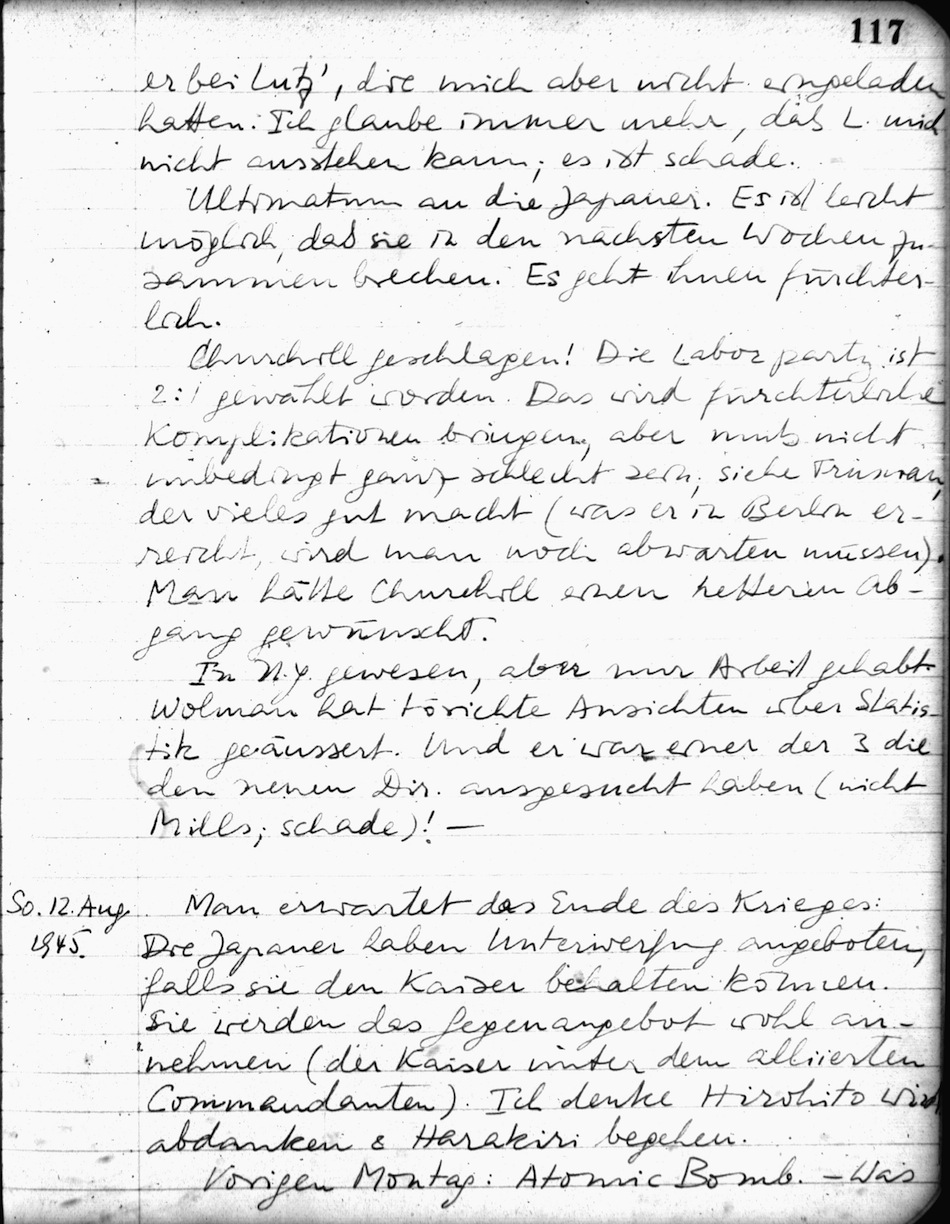 117
er bei Lutz', die mich aber nicht eingeladen
hatten. Ich glaube immer mehr, daß L. mich
nicht ausstehen kann; es ist schade.
Ultimatum an die Japaner. Es ist leicht
möglich, daß sie in den nächsten Wochen zu-
sammen brechen. Es geht ihnen fürchter-
lich.
Churchill geschlagen! Die Labor party ist
2:1 gewählt worden. Das wird fürchterliche
Komplikationen bringen, aber muß nicht
unbedingt ganz schlecht sein; siehe Truman,
der vieles gut macht (was er in Berlin er-
reicht, wird man noch abwarten müssen).
Man hätte Churchill einen netteren Ab-
gang gewünscht.
In N.Y. gewesen, aber nur Arbeit gehabt.
Wolman hat törichte Ansichten über Statis-
tik geäussert. Und er war einer der 3 die
den neuen Dir. ausgesucht haben (nicht
Mills; schade)! —
So. 12. Aug.
1945.
Man erwartet das Ende des Krieges:
Die Japaner haben Unterwerfung angeboten,
falls sie den Kaiser behalten können.
Sie werden das Gegenangebot wohl an-
nehmen (der Kaiser unter dem alliierten
Commandanten). Ich denke Hirohito wird
abdanken & Harakiri begehen.
Vorigen Montag: Atomic Bomb. — Was